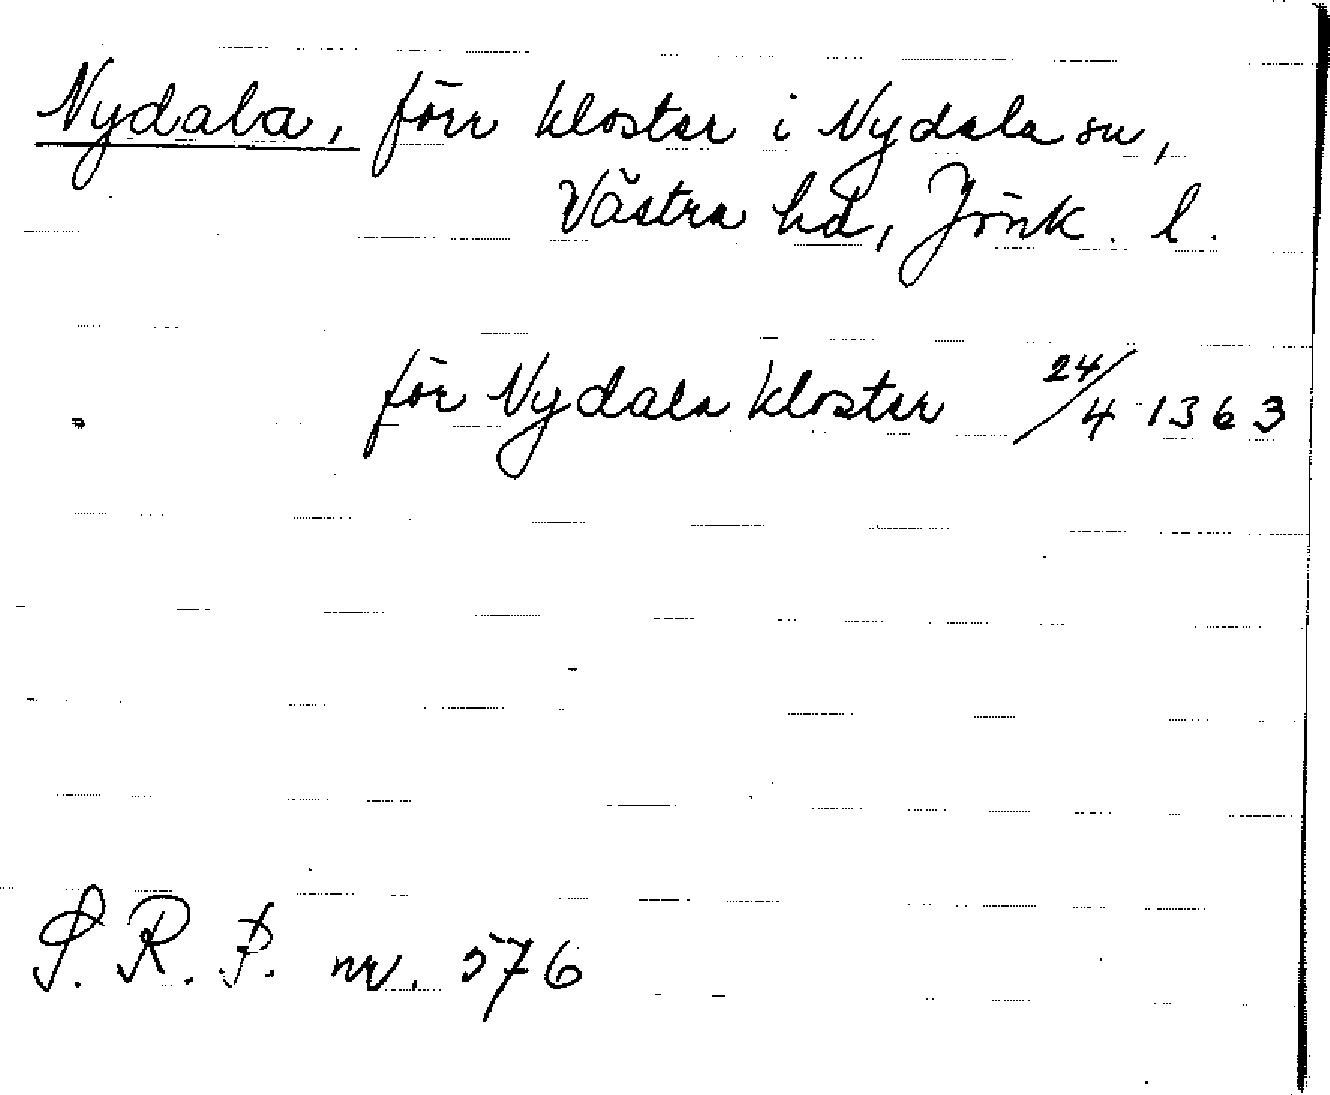 Nydala, förr kloster i Nydala sn,
Västra hd, Jönk. l.
för Nydala kloster 24/4 1363
S. R. P. nr. 576